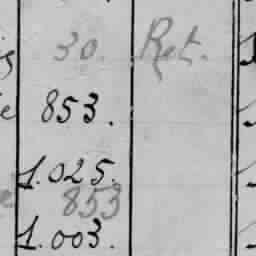 30. Ret.
853.
1.025.
853
1.003.